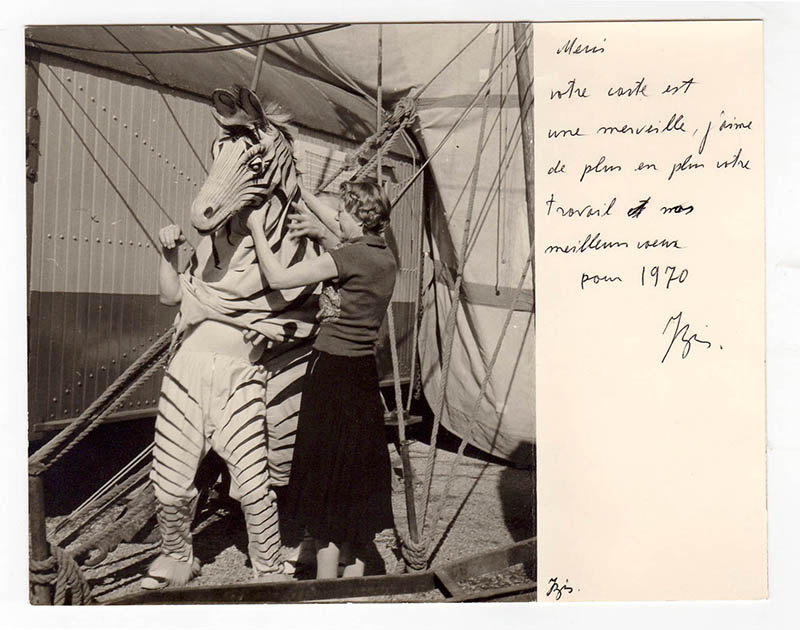 Merci
votre carte est
une merveille, j'aime
de plus en plus votre
travail et nos
meilleurs vœux
pour 1970
Izis.
Izis.